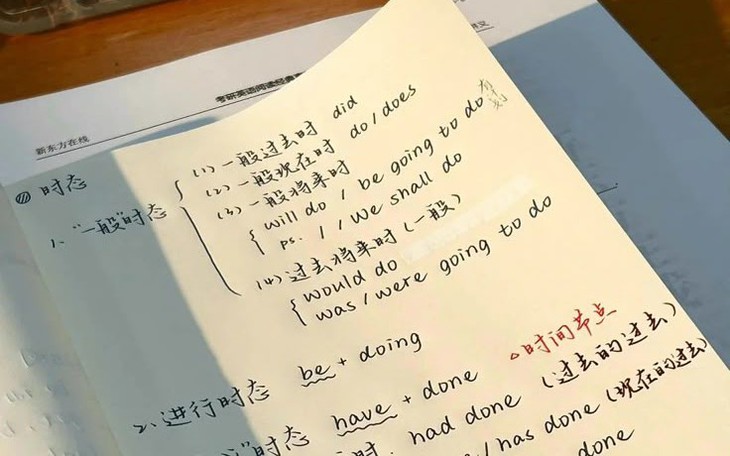 考研英语阅读经典
新东方在线
时态
1、"一般"时态
(1) 一般过去时 did
(2) 一般现在时 do / does
(3) 一般将来时
will do / be going to do
ps. I / we shall do
(4) 过去将来时 (一般)
would do
was / were going to do
2、进行时态 be + doing
"时态 have + done △时间节点
时. had done (过去的过去)
/ has done (现在的过去)
done